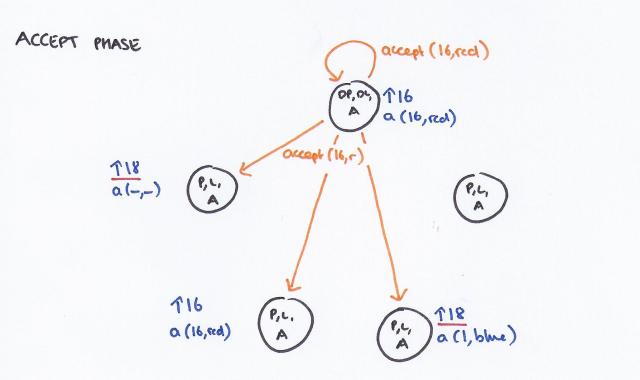 ACCEPT PHASE
accept(16,red)
DP, DL,
A
↑16
a(16,red)
accept(16,r)
↑18
a(-,-)
P, L,
A
P, L,
A
↑16
a(16,red)
P, L,
A
P, L,
A
↑18
a(1,blue)